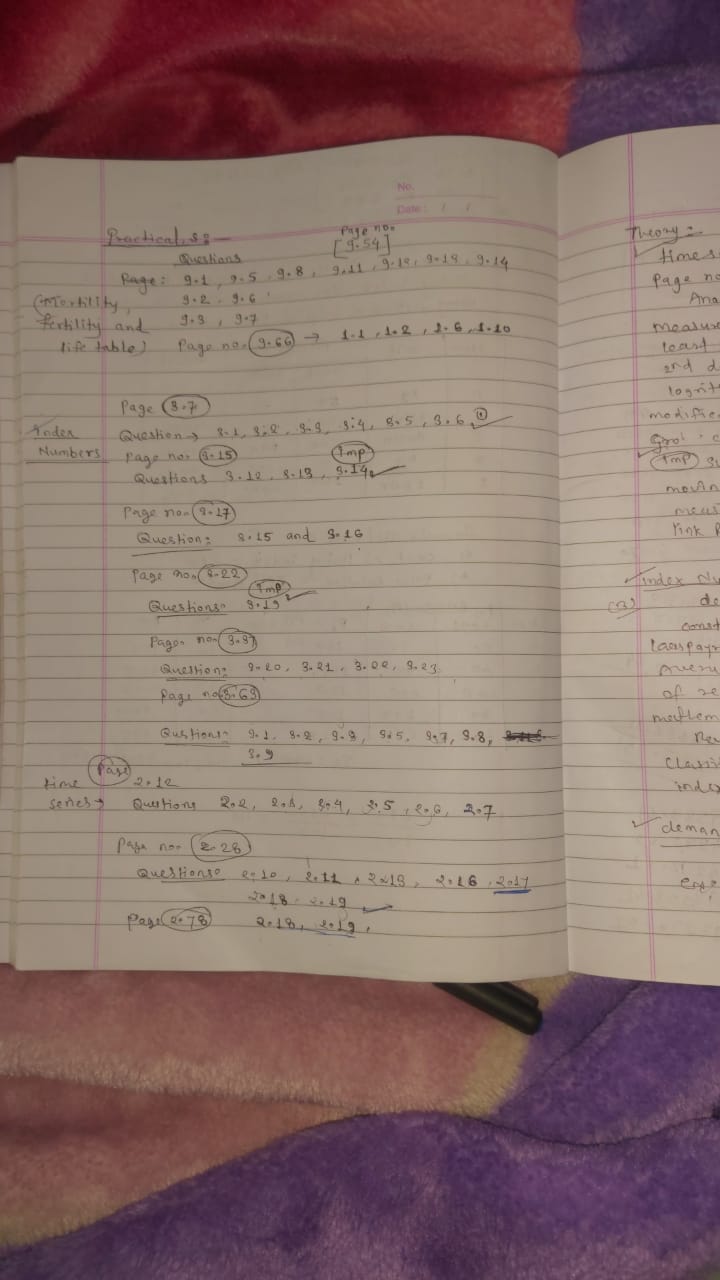 No.
Date: / /
Practical,s:-
Page no.
[9.54]
Questions
Page: 9.1, 9.5, 9.8, 9.11, 9.12, 9.13, 9.14
9.2, 9.6
(Mortility, 9.3, 9.7
fertility and
life table) Page no. 9.66 → 1.1, 1.2, 1.6, 1.10
Page 3.7
Index Question → 3.1, 3.2, 3.3, 3.4, 3.5, 3.6,
Numbers Page no. 3.15 Imp
Questions 3.12, 3.13, 3.14
Page no. 3.17
Question: 3.15 and 3.16
Page no. 3.22
Imp
Questions 3.19
Page no. 3.37
Question: 3.20, 3.21, 3.22, 3.23
Page no. 3.63
Qustion: 9.1, 9.2, 9.3, 9.5, 9.7, 9.8,
3.9
Page 2.12
time
series → Quttions 2.2, 2.4, 2.5, 2.6, 2.7
Page no. 2.28
Questions 2.10, 2.11, 2.13, 2.16, 2.17
2.18, 2.19
Page 2.78 2.18, 2.19,
Theory:-
time s
Page no
Ana
measure
least
2nd d
logrit
modifie
Imp
movin
meas
link
Index Nu
de
const
Laspayr
Averu
of re
mathem
Classif
index
deman